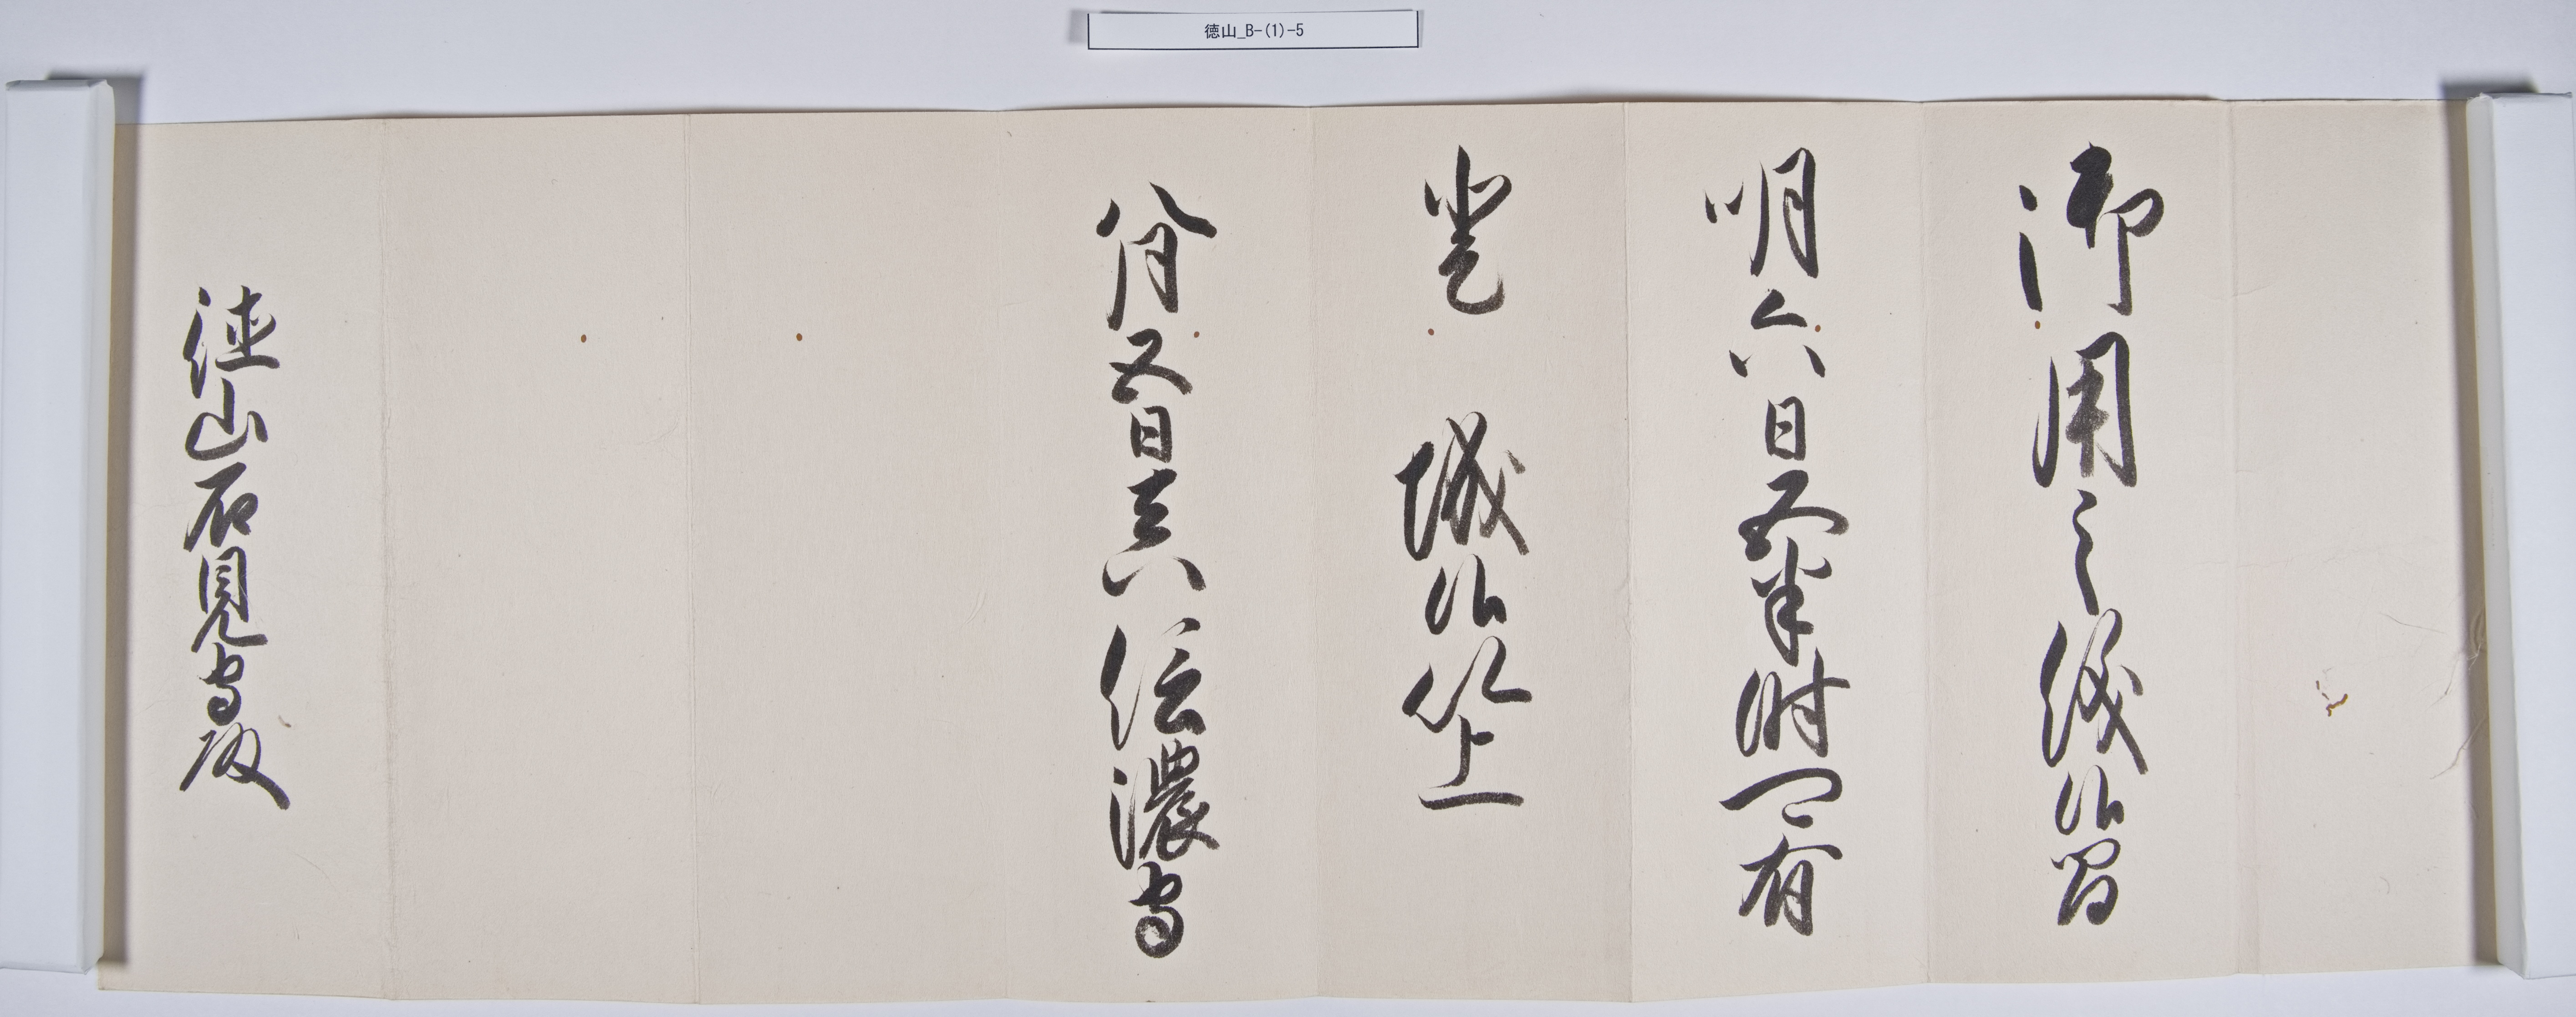 徳山_B-(1)-5
御用之儀候間
明六日五半時可有
登　城候以上
八月五日 真 信濃守
徳山石見守殿